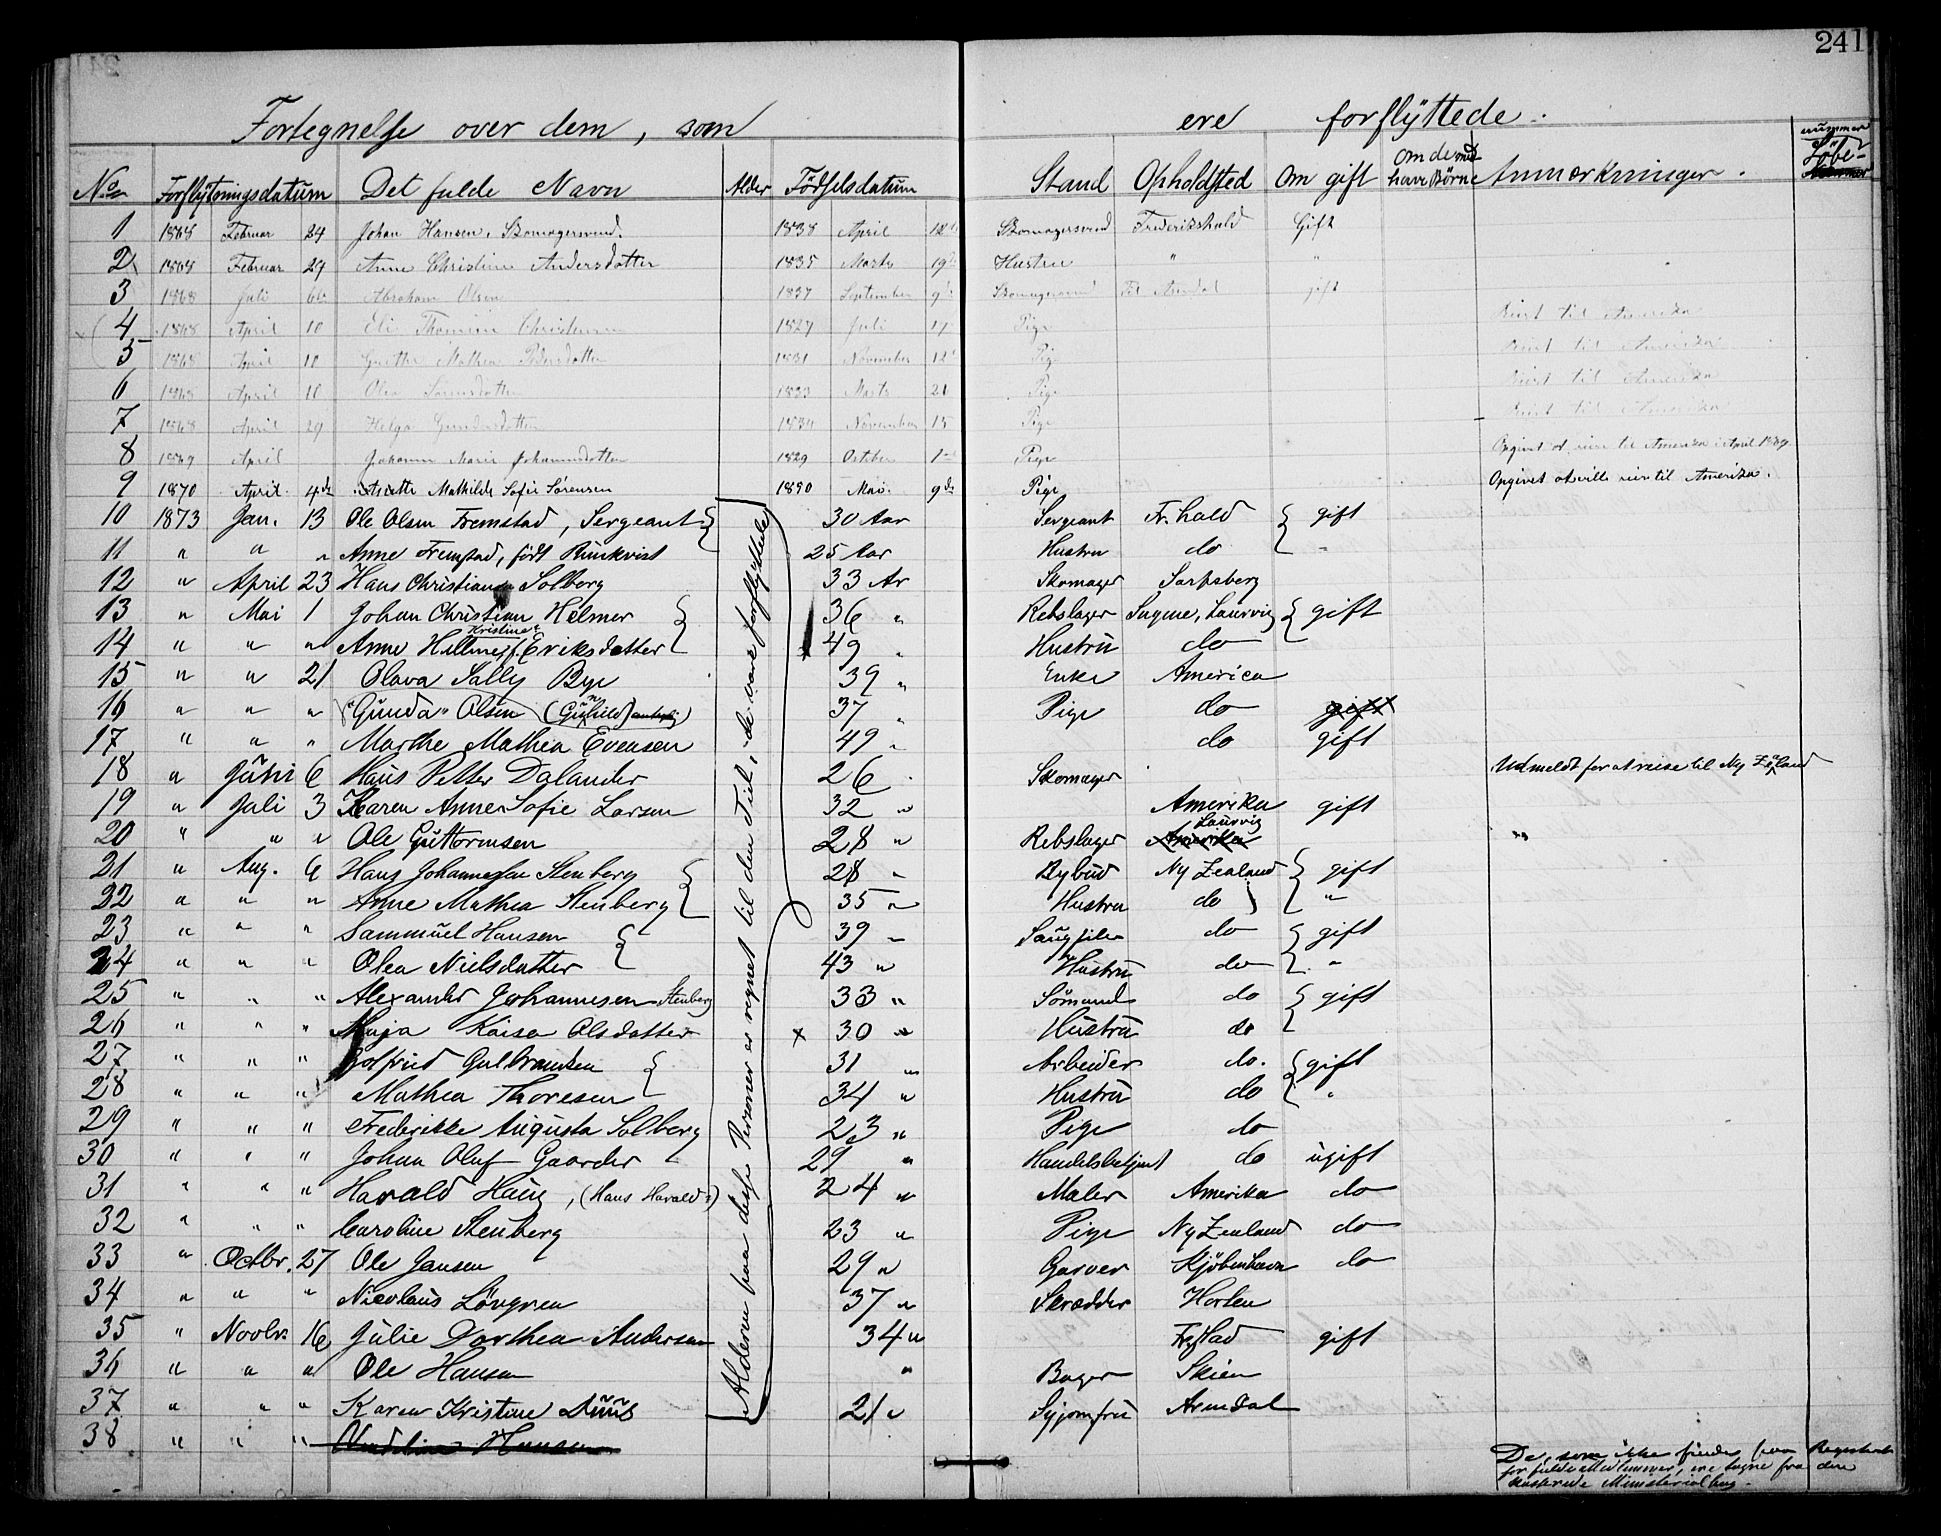 241
Fortegnelse over dem, som ere forflyttede.
No Forflytningsdatum Det fulde Navn Alder Födselsdatum Stand Opholdsted Om gift Om de med have Börn Anmærkninger. nummer
1 1868 Februar 24 Johan Hansen, Skomagersvend. 1838 April 12 Skomagersvend Frederikshald Gift
2 1868 Februar 29 Anne Christine Andersdatter 1835 Marts 19 Hustru " "
3 1868 Juli Abraham Olsen 1837 September 9de Skomagersvend Til Arendal gift
4 1868 April 10 Eli Christensen 1827 Juli 17 Pige Reist til Amerika
5 1868 April 10 Grethe Mathea Pedersdatter 1831 November 12 Pige Reist til Amerika
6 1868 April 10 Olea 1833 Marts 21 Pige Reist til Amerika
7 1868 April 29 Helga Gundersdatter 1834 November 15 Pige Reist til Amerika
8 1869 April Johanne Marie Johannesdatter 1829 October 1 Pige Opgivet at reise til Amerika i April 1869.
9 1870 April 4de Mathilde Sofie Sörensen 1830 Mai 9de Pige Opgivet at ville reise til Amerika.
10 1873 Jan. 13 Ole Olsen Fremstad, Sergeant 30 Aar Sergeant Fr.hald gift
11 " " " Anne Fremstad, födt Runkvist 25 Aar Hustru do "
12 " April 23 Hans Christiansen Solberg 33 Ar Skomager Sarpsberg
13 " Mai 1 Johan Christian Helmer 36 " Rebslager Laurvig gift
Kristine
14 " " " Anne Helmer f. Eriksdatter 49 " Hustru do
15 " " 21 Olava Sally Bye 39 " Enke America
16 " " " "Gunda" Olsen (Gunhild) 37 " Pige do gift
17 " " " Marthe Mathea Evensen 49 " do gift
18 " Juni 6 Hans Petter Dalander 26 " Skomager Udmeldt for at reise til Ny Zeland
19 " Juli 3 Karen Anne Sofie Larsen 32 " Amerika gift
Laurvig
20 " " " Ole Guttormsen 28 " Rebslager Amerika "
21 " Aug. 6 Hans Johannesen Stenberg 28 " Bybud Ny Zealand gift
22 " " " Anne Mathea Stenberg 35 " Hustru do "
23 " " " Sammuel Hansen 39 " Saugfiler do gift
24 " " " Olea Nielsdatter 43 " Hustru do "
25 " " " Alexander Johannesen Stenberg 33 " Sömand do gift
26 " " " Maja Kaisa Olsdatter x 30 " Hustru do
27 " " " Gotfried Gulbrandsen 31 " Arbeider do. gift
28 " " " Mathea Thoresen 34 " Hustru do "
29 " " " Frederikke Augusta Solberg 23 " Pige do
30 " " " Johan Oluf Gaarder 29 " Handelsbetjent do ugift
31 " " " Harald Haug, (Hans Harald?) 24 " Maler Amerika do
32 " " " Caroline Stenberg 23 " Pige Ny Zealand do
33 " Octbr. 27 Ole Jansen 29 " Garver Kjöbenhavn do
34 " " " Nicolaus Lövgren 37 " Skrædder Horten
35 " Novbr 16 Julie Dorthea Andersen 34 " Fr.stad gift
36 " " " Ole Hansen " Bager Skien
37 " " " Karen Kristine Duus 21 " Syjomfru Arendal
38 " " " Hansen
Alderen paa disse Personer er regnet til den Tid, de vare forflyttede
De, som ikke findes paa Registeret
for fulde Medlemmer, ere tagne fra den
kasserede Ministerialbog.